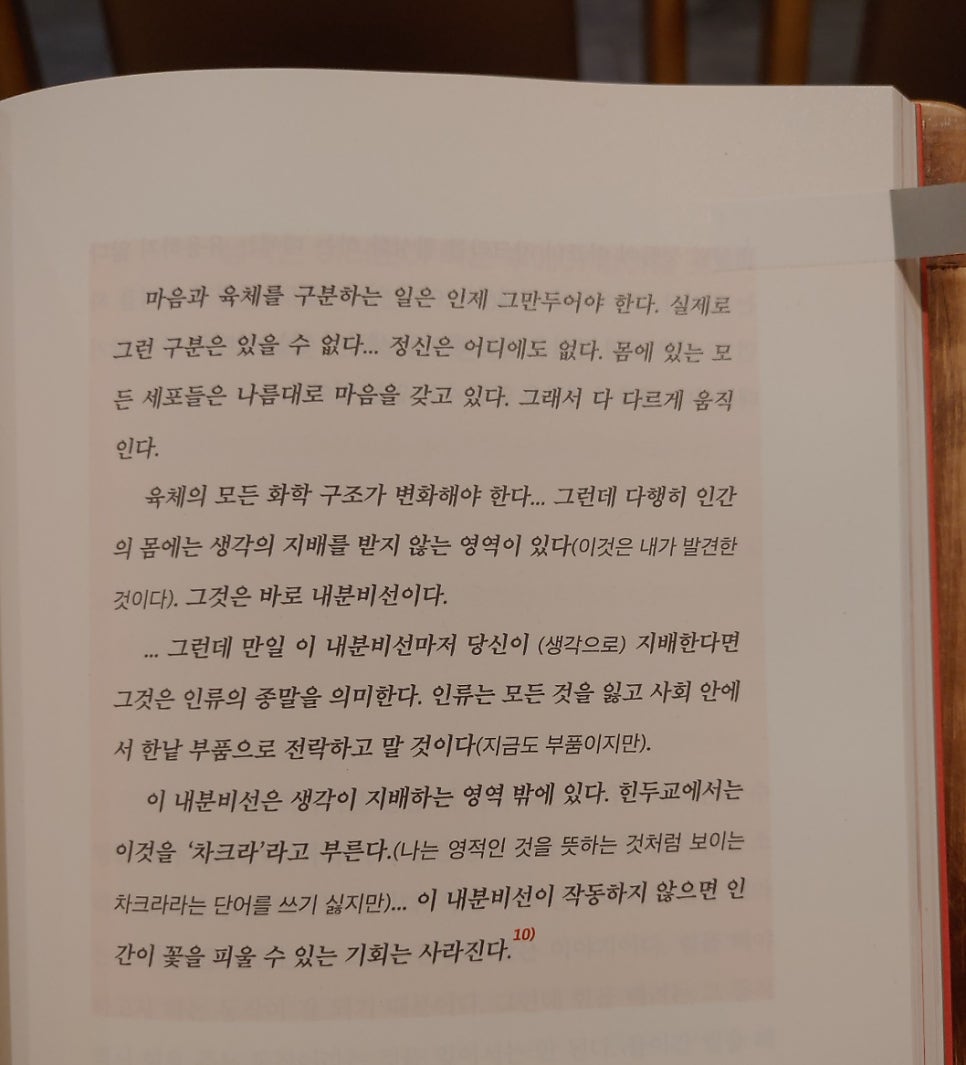 마음과 육체를 구분하는 일은 인제 그만두어야 한다. 실제로
그런 구분은 있을 수 없다... 정신은 어디에도 없다. 몸에 있는 모
든 세포들은 나름대로 마음을 갖고 있다. 그래서 다 다르게 움직
인다.
육체의 모든 화학 구조가 변화해야 한다... 그런데 다행히 인간
의 몸에는 생각의 지배를 받지 않는 영역이 있다(이것은 내가 발견한
것이다). 그것은 바로 내분비선이다.
... 그런데 만일 이 내분비선마저 당신이 (생각으로) 지배한다면
그것은 인류의 종말을 의미한다. 인류는 모든 것을 잃고 사회 안에
서 한낱 부품으로 전락하고 말 것이다(지금도 부품이지만).
이 내분비선은 생각이 지배하는 영역 밖에 있다. 힌두교에서는
이것을 ‘차크라’라고 부른다.(나는 영적인 것을 뜻하는 것처럼 보이는
차크라라는 단어를 쓰기 싫지만)... 이 내분비선이 작동하지 않으면 인
간이 꽃을 피울 수 있는 기회는 사라진다.10)